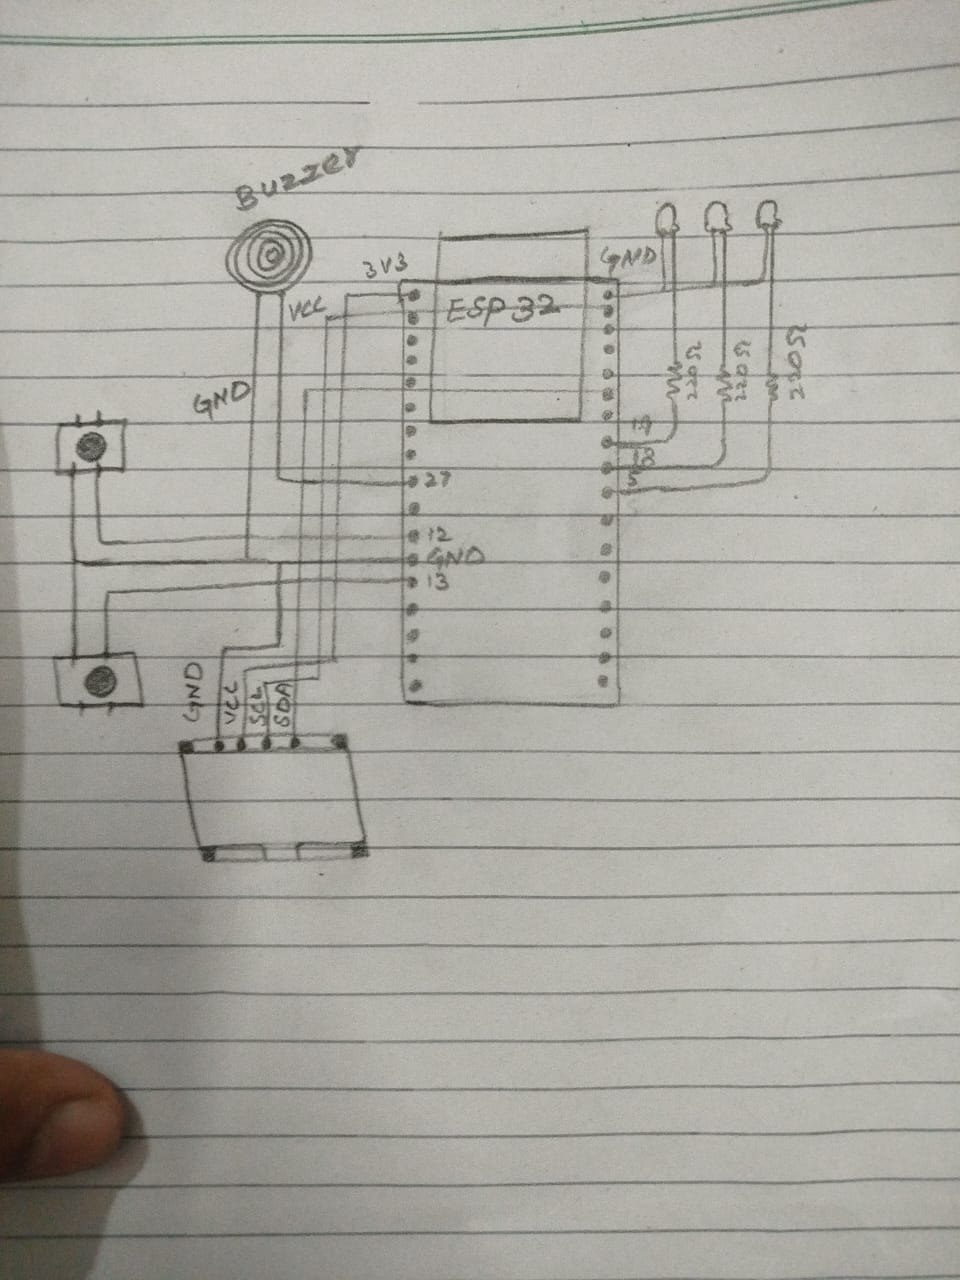 Buzzer
3V3
GND
VCC
ESP 32
GND
220Ω
220Ω
220Ω
19
18
5
27
12
GND
13
GND
VCC
SCL
SDA